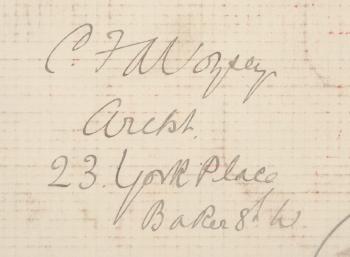 C. F. A Voysey
Archt.
23. York Place
Baker St W